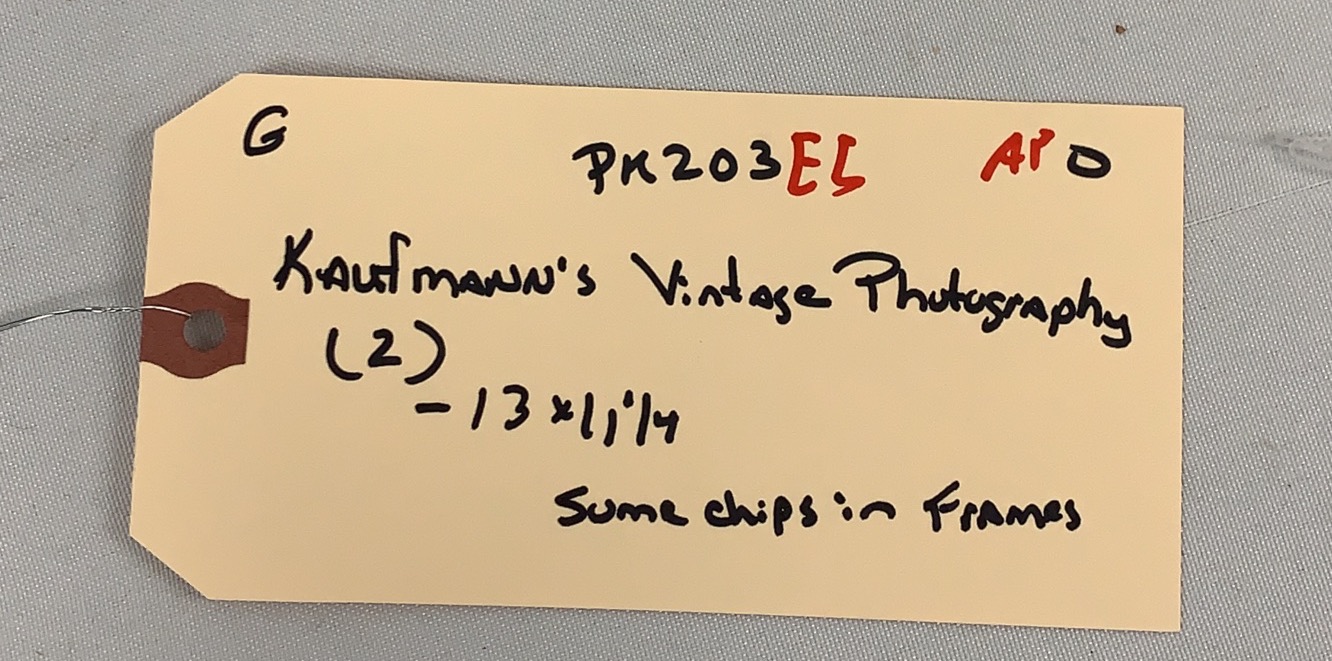 G
PK203E5 APO
Kaufmann's Vintage Photography
(2)
- 13 x 11 1/4
Some chips in Frames